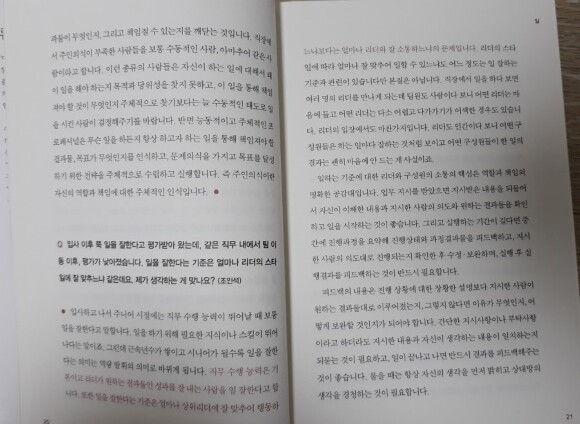 과물이 무엇인지, 그리고 책임질 수 있는지를 깨닫는 것입니다. 직장에
서 주인의식이 부족한 사람들을 보통 수동적인 사람, 아마추어 같은 사
람이라고 합니다. 이런 종류의 사람들은 자신이 하는 일에 대해서 왜
이 일을 해야 하는지 목적과 당위성을 찾지 못하고, 이 일을 통해 책임
져야 할 것이 무엇인지 주체적으로 찾기보다는 늘 수동적인 태도로 일
을 시킨 사람이 결정해주기를 바랍니다. 반면 능동적이고 주체적인 프
로페셔널은 무슨 일을 하든지 항상 하고자 하는 일을 통해 책임져야 할
결과물, 목표가 무엇인지를 인식하고, 문제의식을 가지고 목표를 달성
하기 위한 전략을 주체적으로 수립하고 실행합니다. 즉 주인의식이란
자신의 역할과 책임에 대한 주체적인 인식입니다.
Q 입사 이후 쭉 일을 잘한다고 평가받아 왔는데, 같은 직무 내에서 팀 이
동 이후, 평가가 낮아졌습니다. 일을 잘한다는 기준은 얼마나 리더의 스타
일에 잘 맞추느냐 같은데요. 제가 생각하는 게 맞나요? (조안석)
입사하고 나서 주니어 시절에는 직무 수행 능력이 뛰어날 때 보통
일을 잘한다고 말합니다. 일을 하기 위해 필요한 지식이나 스킬이 뛰어
나다는 말이죠. 그런데 근속년수가 쌓이고 시니어가 될수록 일을 잘한
다는 의미는 역량 발휘의 의미로 바뀌게 됩니다. 직무 수행 능력은 기
본이고 리더가 원하는 결과물인 성과를 잘 내는 사람을 일 잘한다고 합
니다. 또한 일을 잘한다는 기준은 얼마나 상위리더에 잘 맞추어 행동하
20
일
느냐보다는 얼마나 리더와 잘 소통하느냐의 문제입니다. 리더의 스타
일에 따라 얼마나 잘 맞추어 일할 수 있느냐도 어느 정도는 일 잘하는
기준과 관련이 있습니다만 본질은 아닙니다. 직장에서 일을 하다 보면
여러 명의 리더를 만나게 되는데 팀원도 사람이다 보니 어떤 리더는 마
음에 들고 어떤 리더는 다소 어렵고 다가가기가 어색한 경우도 있습니
다. 리더의 입장에서도 마찬가지입니다. 리더도 인간이다 보니 어떤 구
성원들은 하는 일마다 잘하는 것처럼 보이고 어떤 구성원들이 한 일의
결과는 괜히 마음에 안 드는 게 사실이죠.
일하는 기준에 대한 리더와 구성원의 소통의 핵심은 역할과 책임의
명확한 공감대입니다. 업무 지시를 받았으면 지시받은 내용을 되물어
서 자신이 이해한 내용과 지시한 사람의 의도와 원하는 결과물을 확인
하고 일을 시작하는 것이 좋습니다. 그리고 실행하는 기간이 길다면 중
간에 진행과정을 요약해 진행상태와 과정결과물을 피드백하고, 지시
한 사람의 의도대로 진행되는지 확인한 후 수정·보완하며, 실행 후 실
행결과를 피드백하는 것이 반드시 필요합니다.
피드백의 내용은 진행 상황에 대한 장황한 설명보다 지시한 사람이
원하는 결과물대로 이루어졌는지, 그렇지 않다면 이유가 무엇인지, 어
떻게 보완할 것인지가 되어야 합니다. 간단한 지시사항이나 부탁사항
이라고 하더라도 지시한 내용과 자신이 생각하는 내용이 일치하는지
되묻는 것이 필요하고, 일이 끝나고 나면 반드시 결과를 피드백해주는
것이 좋습니다. 물을 때는 항상 자신의 생각을 먼저 밝히고 상대방의
생각을 경청하는 것이 필요합니다.
21